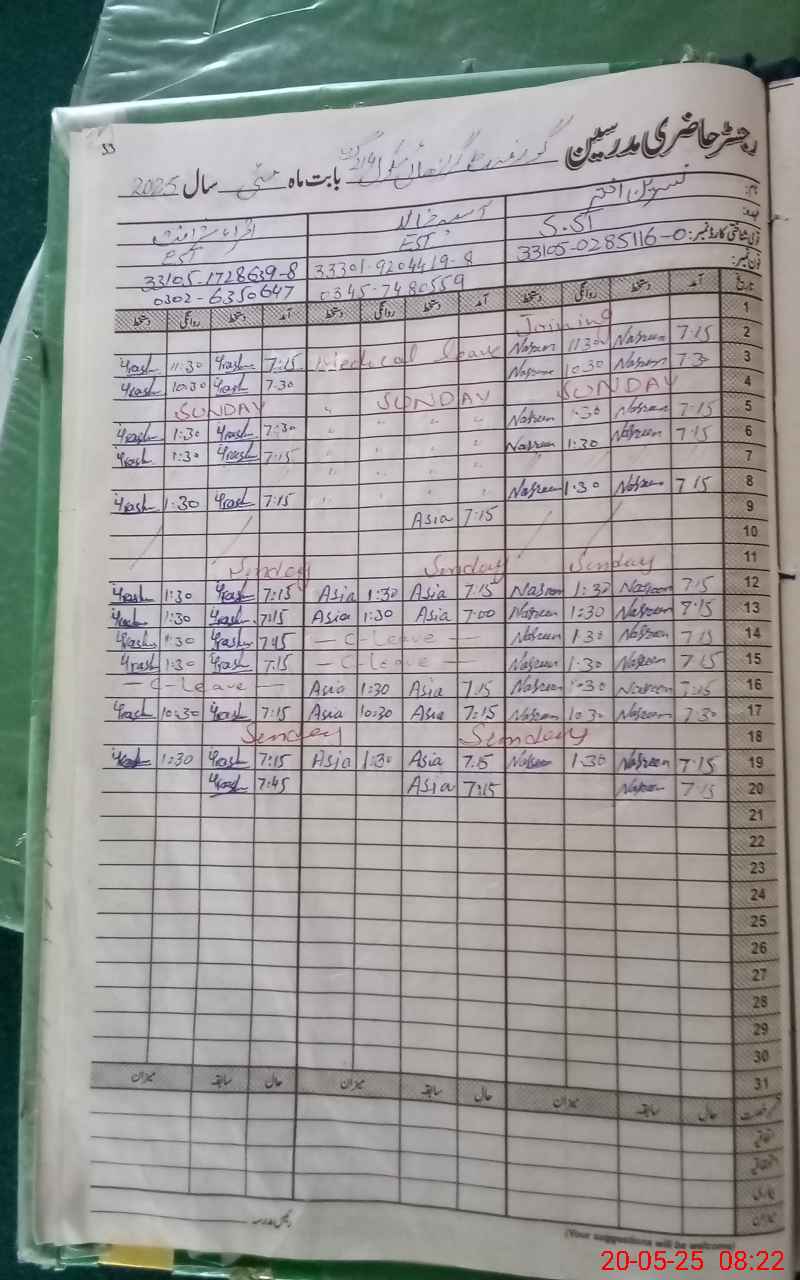 33
رجسٹر حاضری مدرسین گورنمنٹ گرلز ہائی سکول 214 بابت ماہ مئی سال 2025
نام: نسرین اختر آسیہ خالد
عہدہ: S.S.T EST EST
قومی شناختی کارڈ نمبر: 33105-0285116-0 33301-9204419-8 33105-1728639-8
فون نمبر: 0345-7480559 0302-6350647
تاریخ آمد دستخط روانگی دستخط آمد دستخط روانگی دستخط آمد دستخط روانگی دستخط
1
2 7:15 Nasreen 11:30 Nasreen Joining Medical leave 7:15 Yrash 11:30 Yrash
3 7:30 Nasreen 10:30 Nasreen 7:30 Yrash 10:30 Yrash
4 SUNDAY SUNDAY SUNDAY
5 7:15 Nasreen 1:30 Nasreen " " " " 7:30 Yrash 1:30 Yrash
6 7:15 Nasreen 1:30 Nasreen " " " " 7:15 Yrash 1:30 Yrash
7 " " " "
8 7:15 Nasreen 1:30 Nasreen " " " " 7:15 Yrash 1:30 Yrash
9 7:15 Asia
10
11 Sunday Sunday Sunday
12 7:15 Nasreen 1:30 Nasreen 7:15 Asia 1:30 Asia 7:15 Yrash 1:30 Yrash
13 7:15 Nasreen 1:30 Nasreen 7:00 Asia 1:30 Asia 7:15 Yrash 1:30 Yrash
14 7:15 Nasreen 1:30 Nasreen — C-Leave — 7:45 Yrash 1:30 Yrash
15 7:15 Nasreen 1:30 Nasreen — C-Leave — 7:15 Yrash 1:30 Yrash
16 7:15 Nasreen 1:30 Nasreen 7:15 Asia 1:30 Asia — C-Leave —
17 7:30 Nasreen 10:30 Nasreen 7:15 Asia 10:30 Asia 7:15 Yrash 10:30 Yrash
18 Sunday Sunday
19 7:15 Nasreen 1:30 Nasreen 7:15 Asia 1:30 Asia 7:15 Yrash 1:30 Yrash
20 7:15 Nasreen 7:15 Asia 7:45 Yrash
21
22
23
24
25
26
27
28
29
30
31
حال سابقہ میزان حال سابقہ میزان حال سابقہ میزان
اتفاقیہ
استحقاقیہ
بیماری
میزان
رئیس مدرسہ
(Your suggestions will be welcome)
20-05-25 08:22